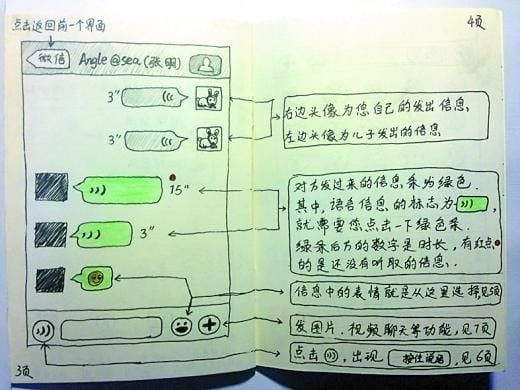 点击返回前一个界面
微信 Angle@sea(张明)
3"
3"
15"
3"
3页
4页
右边头像为您自己的发出信息、
左边头像为儿子发出的信息
对方发过来的信息条为绿色.
其中,语音信息的标志为
就需要您点击一下绿色条.
绿条后方的数字是时长,有红点
的是还没有听取的信息.
信息中的表情就是从这里选择见5页
发图片、视频聊天等功能,见7页
点击 ,出现 按住说话 ,见6页